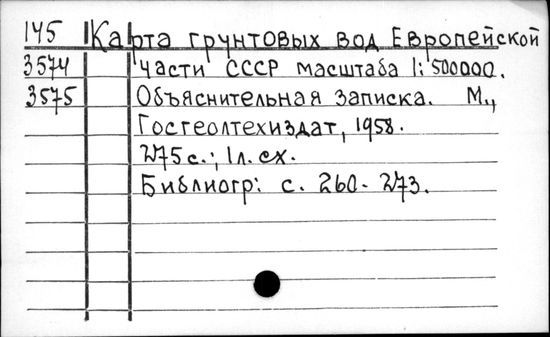 145 Карта грунтовых вод Европейской
3574 части СССР масштаба 1:500000.
3575 Объяснительная записка. М.,
Госгеолтехиздат, 1958.
275 с.; 1 л. сх.
Библиогр: с. 260-273.